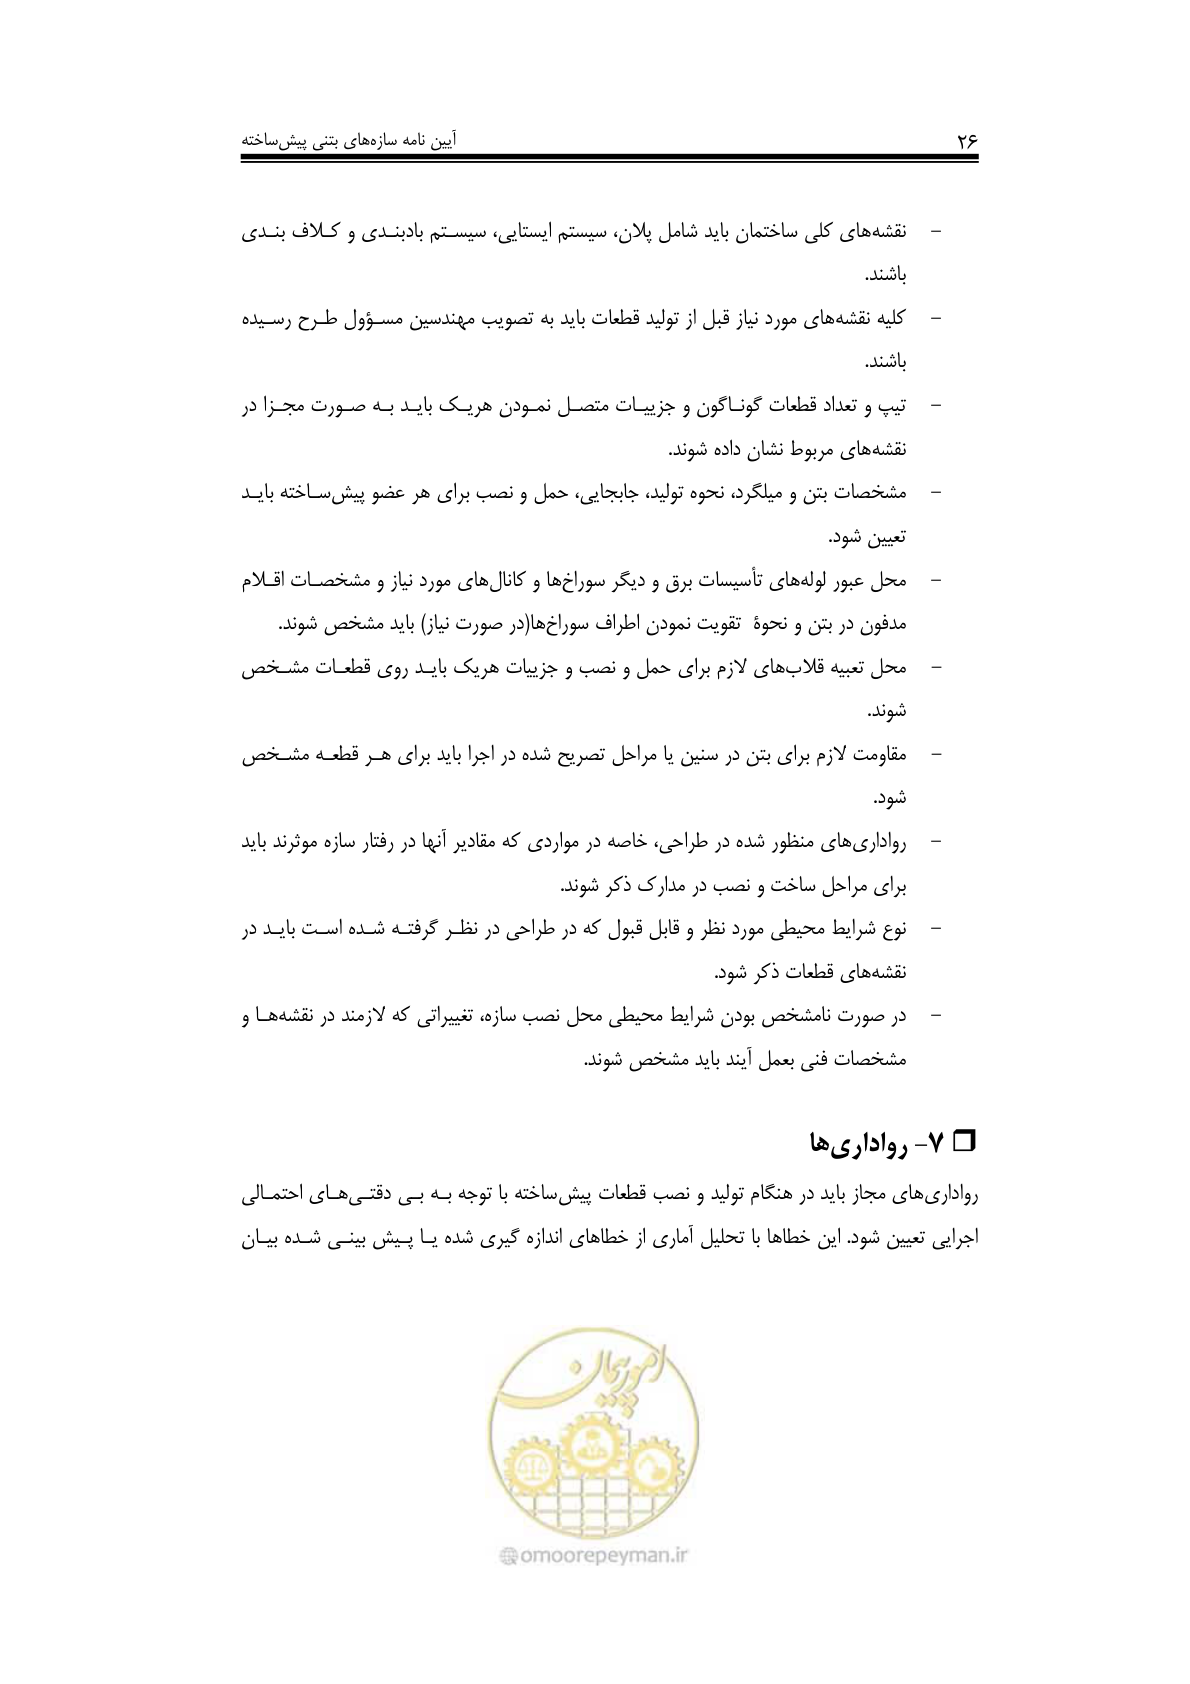 ۲۶ آیین نامه سازه‌های بتنی پیش‌ساخته
- نقشه‌های کلی ساختمان باید شامل پلان، سیستم ایستایی، سیستم بادبندی و کلاف بندی
باشند.
- کلیه نقشه‌های مورد نیاز قبل از تولید قطعات باید به تصویب مهندسین مسؤول طرح رسیده
باشند.
- تیپ و تعداد قطعات گوناگون و جزییات متصل نمودن هریک باید به صورت مجزا در
نقشه‌های مربوط نشان داده شوند.
- مشخصات بتن و میلگرد، نحوه تولید، جابجایی، حمل و نصب برای هر عضو پیش‌ساخته باید
تعیین شود.
- محل عبور لوله‌های تأسیسات برق و دیگر سوراخ‌ها و کانال‌های مورد نیاز و مشخصات اقلام
مدفون در بتن و نحوۀ تقویت نمودن اطراف سوراخ‌ها(در صورت نیاز) باید مشخص شوند.
- محل تعبیه قلاب‌های لازم برای حمل و نصب و جزییات هریک باید روی قطعات مشخص
شوند.
- مقاومت لازم برای بتن در سنین یا مراحل تصریح شده در اجرا باید برای هر قطعه مشخص
شود.
- رواداری‌های منظور شده در طراحی، خاصه در مواردی که مقادیر آنها در رفتار سازه موثرند باید
برای مراحل ساخت و نصب در مدارک ذکر شوند.
- نوع شرایط محیطی مورد نظر و قابل قبول که در طراحی در نظر گرفته شده است باید در
نقشه‌های قطعات ذکر شود.
- در صورت نامشخص بودن شرایط محیطی محل نصب سازه، تغییراتی که لازمند در نقشه‌ها و
مشخصات فنی بعمل آیند باید مشخص شوند.
❒ ۷- رواداری‌ها
رواداری‌های مجاز باید در هنگام تولید و نصب قطعات پیش‌ساخته با توجه به بی دقتی‌های احتمالی
اجرایی تعیین شود. این خطاها با تحلیل آماری از خطاهای اندازه گیری شده یا پیش بینی شده بیان
امور پیمان
@omoorepeyman.ir